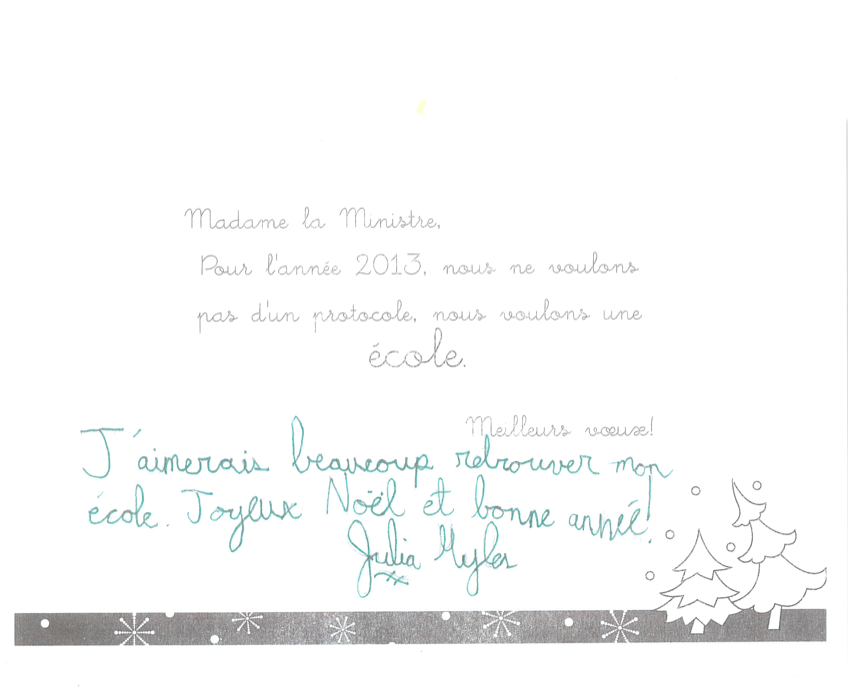 Madame la Ministre,
Pour l'année 2013, nous ne voulons
pas d'un protocole, nous voulons une
école.
Meilleurs vœux!
J'aimerais beaucoup retrouver mon
école. Joyeux Noël et bonne année!
Julia Myles